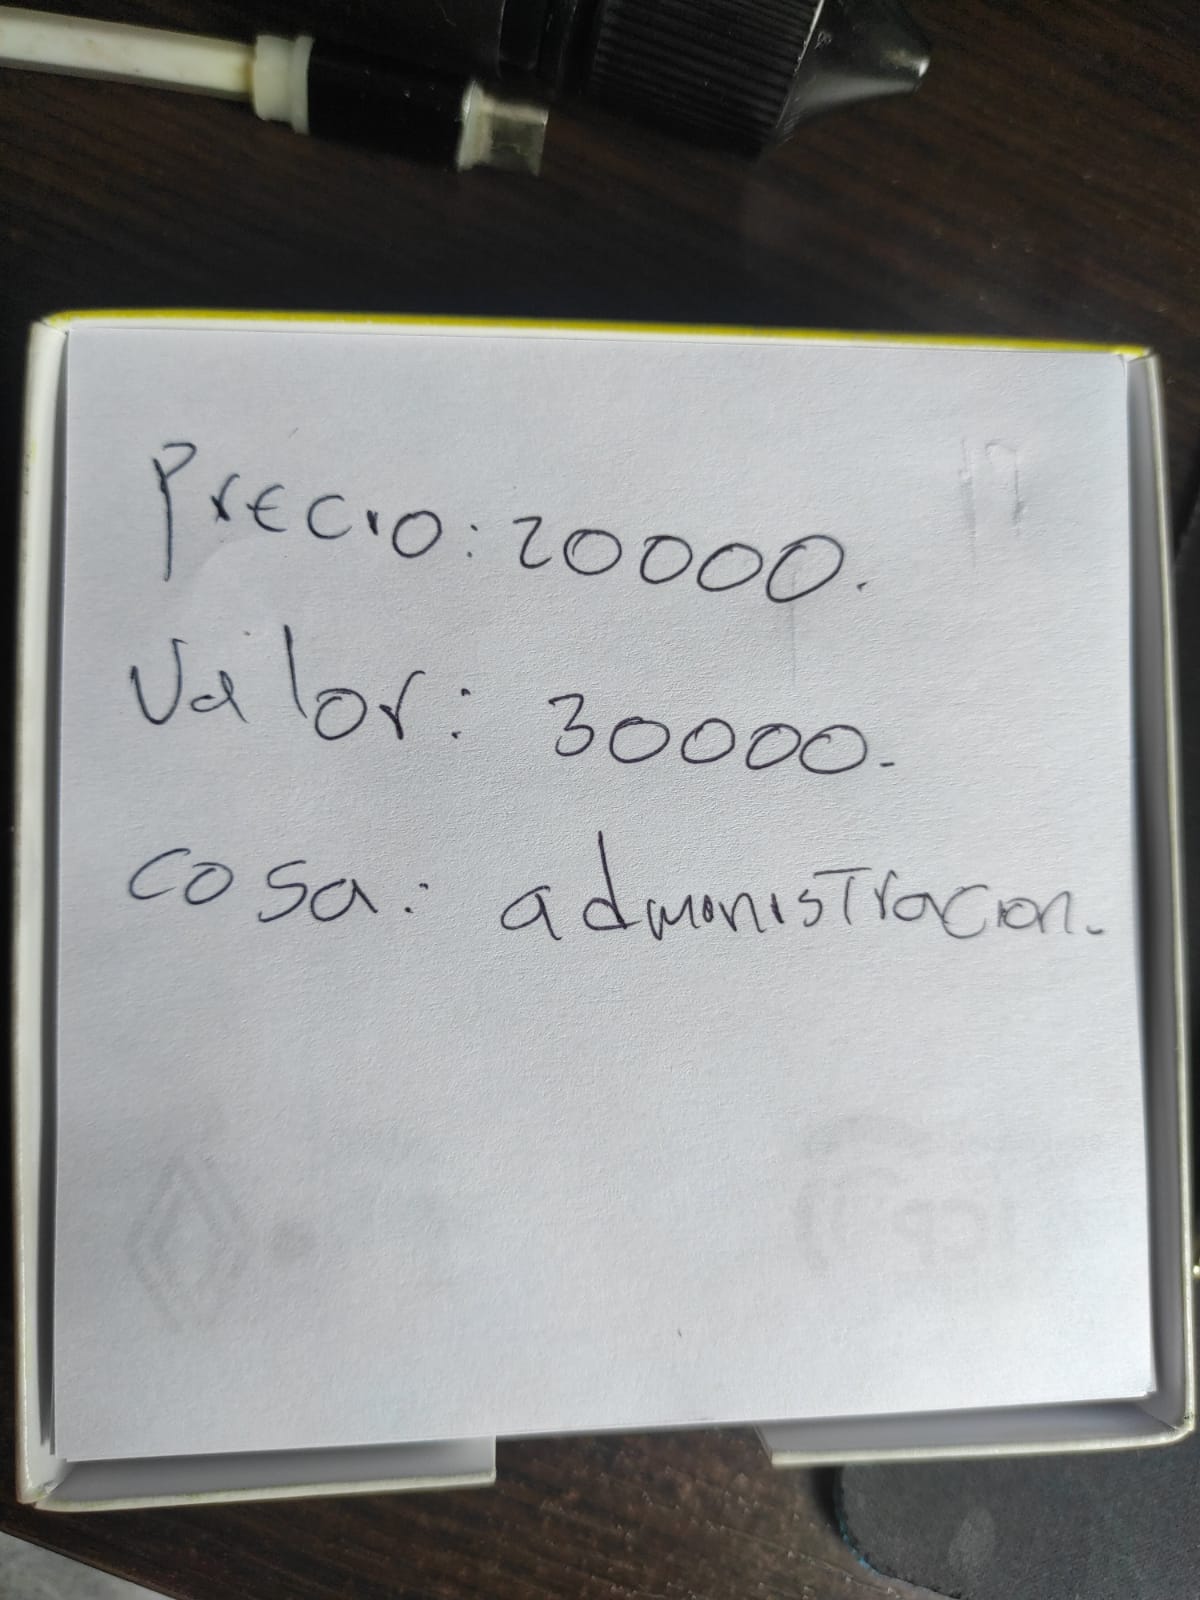 Precio: 20000.
Valor: 30000.
cosa: administracion.